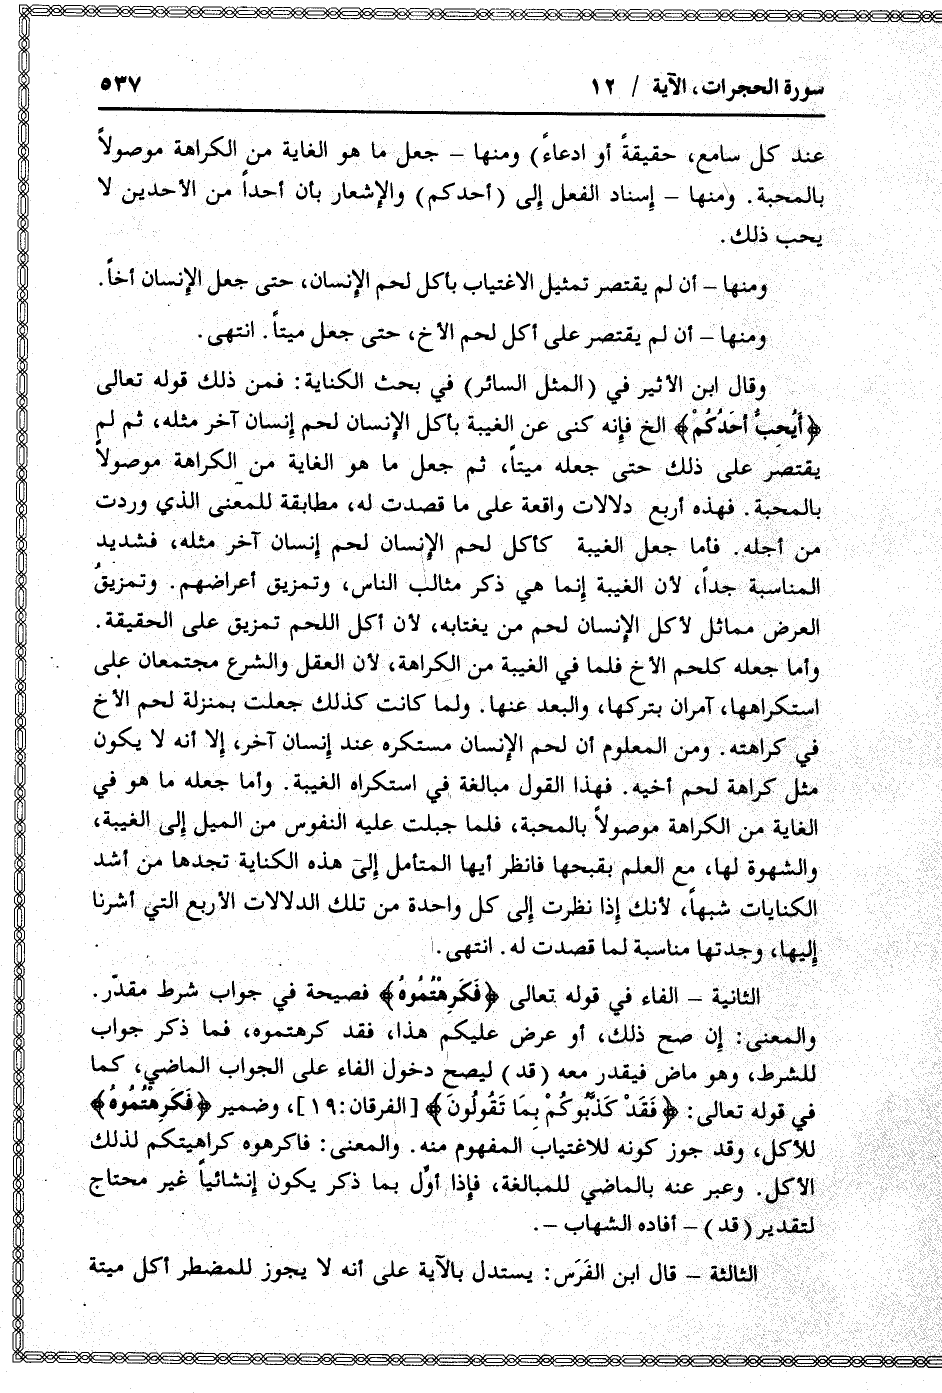 سورة الحجرات، الآية / ١٢
٥٣٧
عند كل سامع، حقيقةً أو ادعاءً) ومنها – جعل ما هو الغاية من الكراهة موصولاً
بالمحبة. ومنها – إسناد الفعل إلى (أحدكم) والإشعار بأن أحداً من الأحدين لا
يحب ذلك.
ومنها – أن لم يقتصر تمثيل الاغتياب بأكل لحم الإنسان، حتى جعل الإنسان أخاً.
ومنها – أن لم يقتصر على أكل لحم الأخ، حتى جعل ميتاً. انتهى.
وقال ابن الأثير في (المثل السائر) في بحث الكناية: فمن ذلك قوله تعالى
﴿أَيُحِبُّ أَحَدُكُمْ﴾ الخ فإنه كنى عن الغيبة بأكل الإنسان لحم إنسان آخر مثله، ثم لم
يقتصر على ذلك حتى جعله ميتاً، ثم جعل ما هو الغاية من الكراهة موصولاً
بالمحبة. فهذه أربع دلالات واقعة على ما قصدت له، مطابقة للمعنى الذي وردت
من أجله. فأما جعل الغيبة كأكل لحم الإنسان لحم إنسان آخر مثله، فشديد
المناسبة جداً، لأن الغيبة إنما هي ذكر مثالب الناس، وتمزيق أعراضهم. وتمزيقُ
العرض مماثل لأكل الإنسان لحم من يغتابه، لأن أكل اللحم تمزيق على الحقيقة.
وأما جعله كلحم الأخ فلما في الغيبة من الكراهة، لأن العقل والشرع مجتمعان على
استكراهها، آمران بتركها، والبعد عنها. ولما كانت كذلك جعلت بمنزلة لحم الأخ
في كراهته. ومن المعلوم أن لحم الإنسان مستكره عند إنسان آخر، إلا أنه لا يكون
مثل كراهة لحم أخيه. فهذا القول مبالغة في استكراه الغيبة. وأما جعله ما هو في
الغاية من الكراهة موصولاً بالمحبة، فلما جبلت عليه النفوس من الميل إلى الغيبة،
والشهوة لها، مع العلم بقبحها فانظر أيها المتأمل إلى هذه الكناية تجدها من أشد
الكنايات شبهاً، لأنك إذا نظرت إلى كل واحدة من تلك الدلالات الأربع التي أشرنا
إليها، وجدتها مناسبة لما قصدت له. انتهى.
الثانية – الفاء في قوله تعالى ﴿فَكَرِهْتُمُوهُ﴾ فصيحة في جواب شرط مقدّر.
والمعنى: إن صح ذلك، أو عرض عليكم هذا، فقد كرهتموه، فما ذكر جواب
للشرط، وهو ماض فيقدر معه (قد) ليصح دخول الفاء على الجواب الماضي، كما
في قوله تعالى: ﴿فَقَدْ كَذَّبُوكُمْ بِمَا تَقُولُونَ﴾ [الفرقان:١٩]، وضمير ﴿فَكَرِهْتُمُوهُ﴾
للأكل، وقد جوز كونه للاغتياب المفهوم منه. والمعنى: فاكرهوه كراهيتكم لذلك
الأكل. وعبر عنه بالماضي للمبالغة، فإذا أوِّل بما ذكر يكون إنشائياً غير محتاج
لتقدير (قد) – أفاده الشهاب –.
الثالثة – قال ابن الفَرَس: يستدل بالآية على أنه لا يجوز للمضطر أكل ميتة